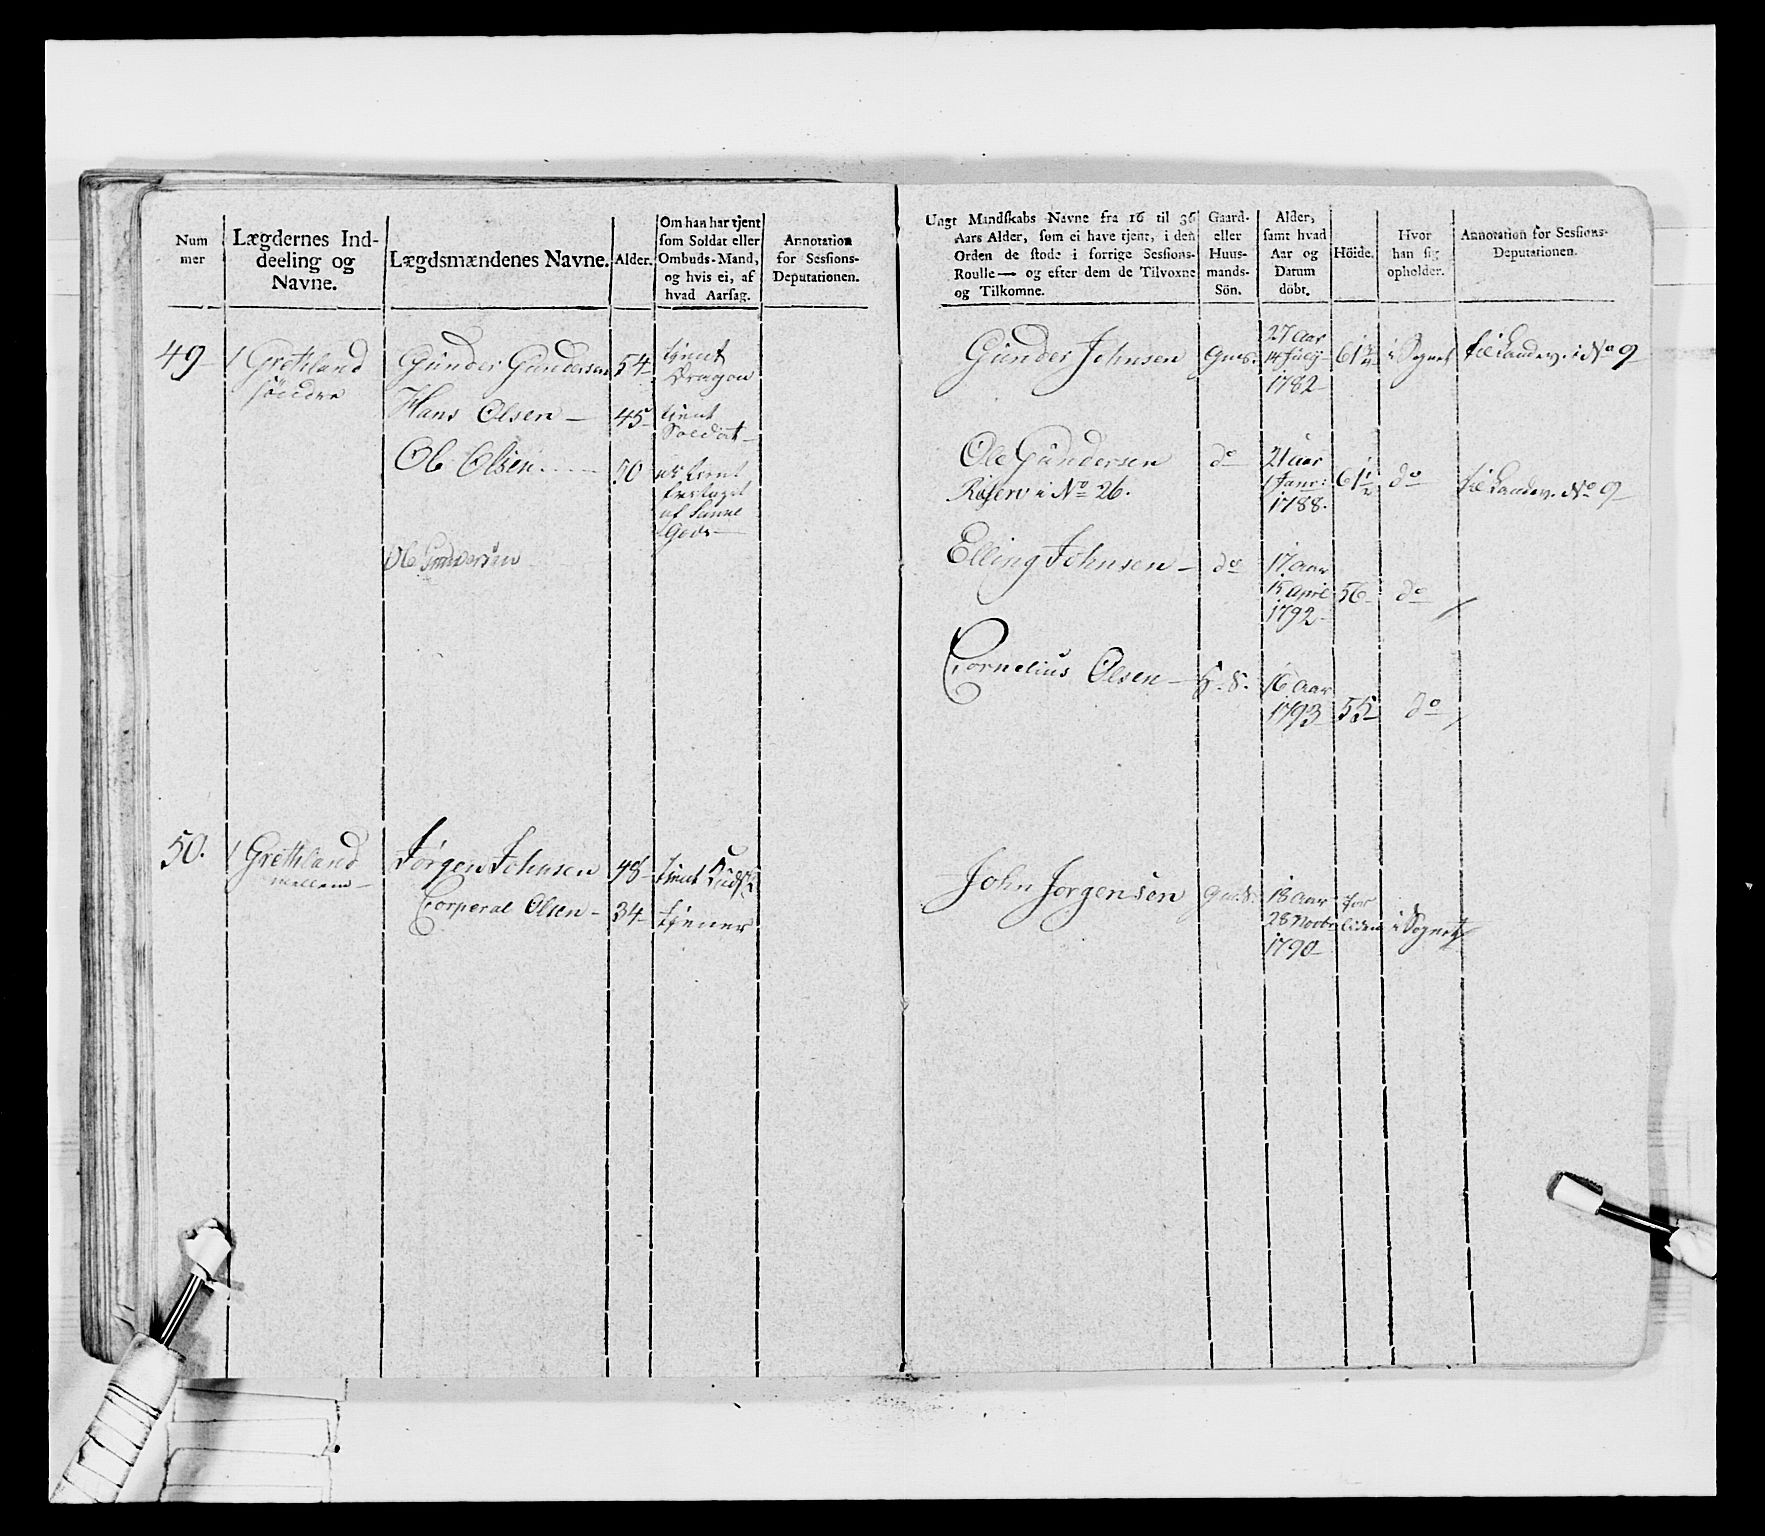 Num
mer
Lægdernes Ind-
deeling og
Navne.
Lægdsmændenes Navne.
Alder.
Om han har tjent
som Soldat eller
Ombuds-Mand,
og hvis ei, af
hvad Aarsag.
Annotation
for Sessions-
Deputationen.
Ungt Mandskabs Navne fra 16 til 36
Aars Alder, som ei have tjent, i den
Orden de stode i forrige Sessions-
Roulle — og efter dem de Tilvoxne
og Tilkomne.
Gaard-
eller
Huus-
mands-
Sön.
Alder,
samt hvad
Aar og
Datum
döbt.
Höide.
Hvor
han sig
opholder.
Annotation for Sessions-
Deputationen.
49
1 Grethland
söndre
Gunder Gundersen
54
tjent
Dragon
Hans Olsen
45
tjent
Soldat
Ole Olsen
50
Gods
Ole Gundersen
50.
1 Grethland
mellem
Jörgen Johnsen
48
tjent
Corporal Olsen
34
tjener
Gunder Johnsen
Gmds.
27 Aar
14 July
1782
61½
i Sognet
til Landev. i No 9
Ole Gundersen
Reserv i No 26.
do
21 Aar
1 Janr:
1788.
61½
do
til Landev. No 9
Elling Johnsen
do
17 Aar
15 April
1792
56
do
Cornelius Olsen
H.S.
16 Aar
1793
55
do
John Jorgensen
GmS.
18 Aar
28 Novbr
1790
for
liden
i Sognet